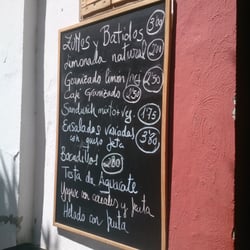 Zumos y Batidos 3'00
Limonada natural
Granizado limon/ 2'50
Café Granizado 2'50
Sandwich mixto+veg. 1'75
Ensaladas variadas 3'80
con queso feta
Bocadillos 2'80
Tosta de Aguacate
Yogur con cereales y fruta
Helado con fruta